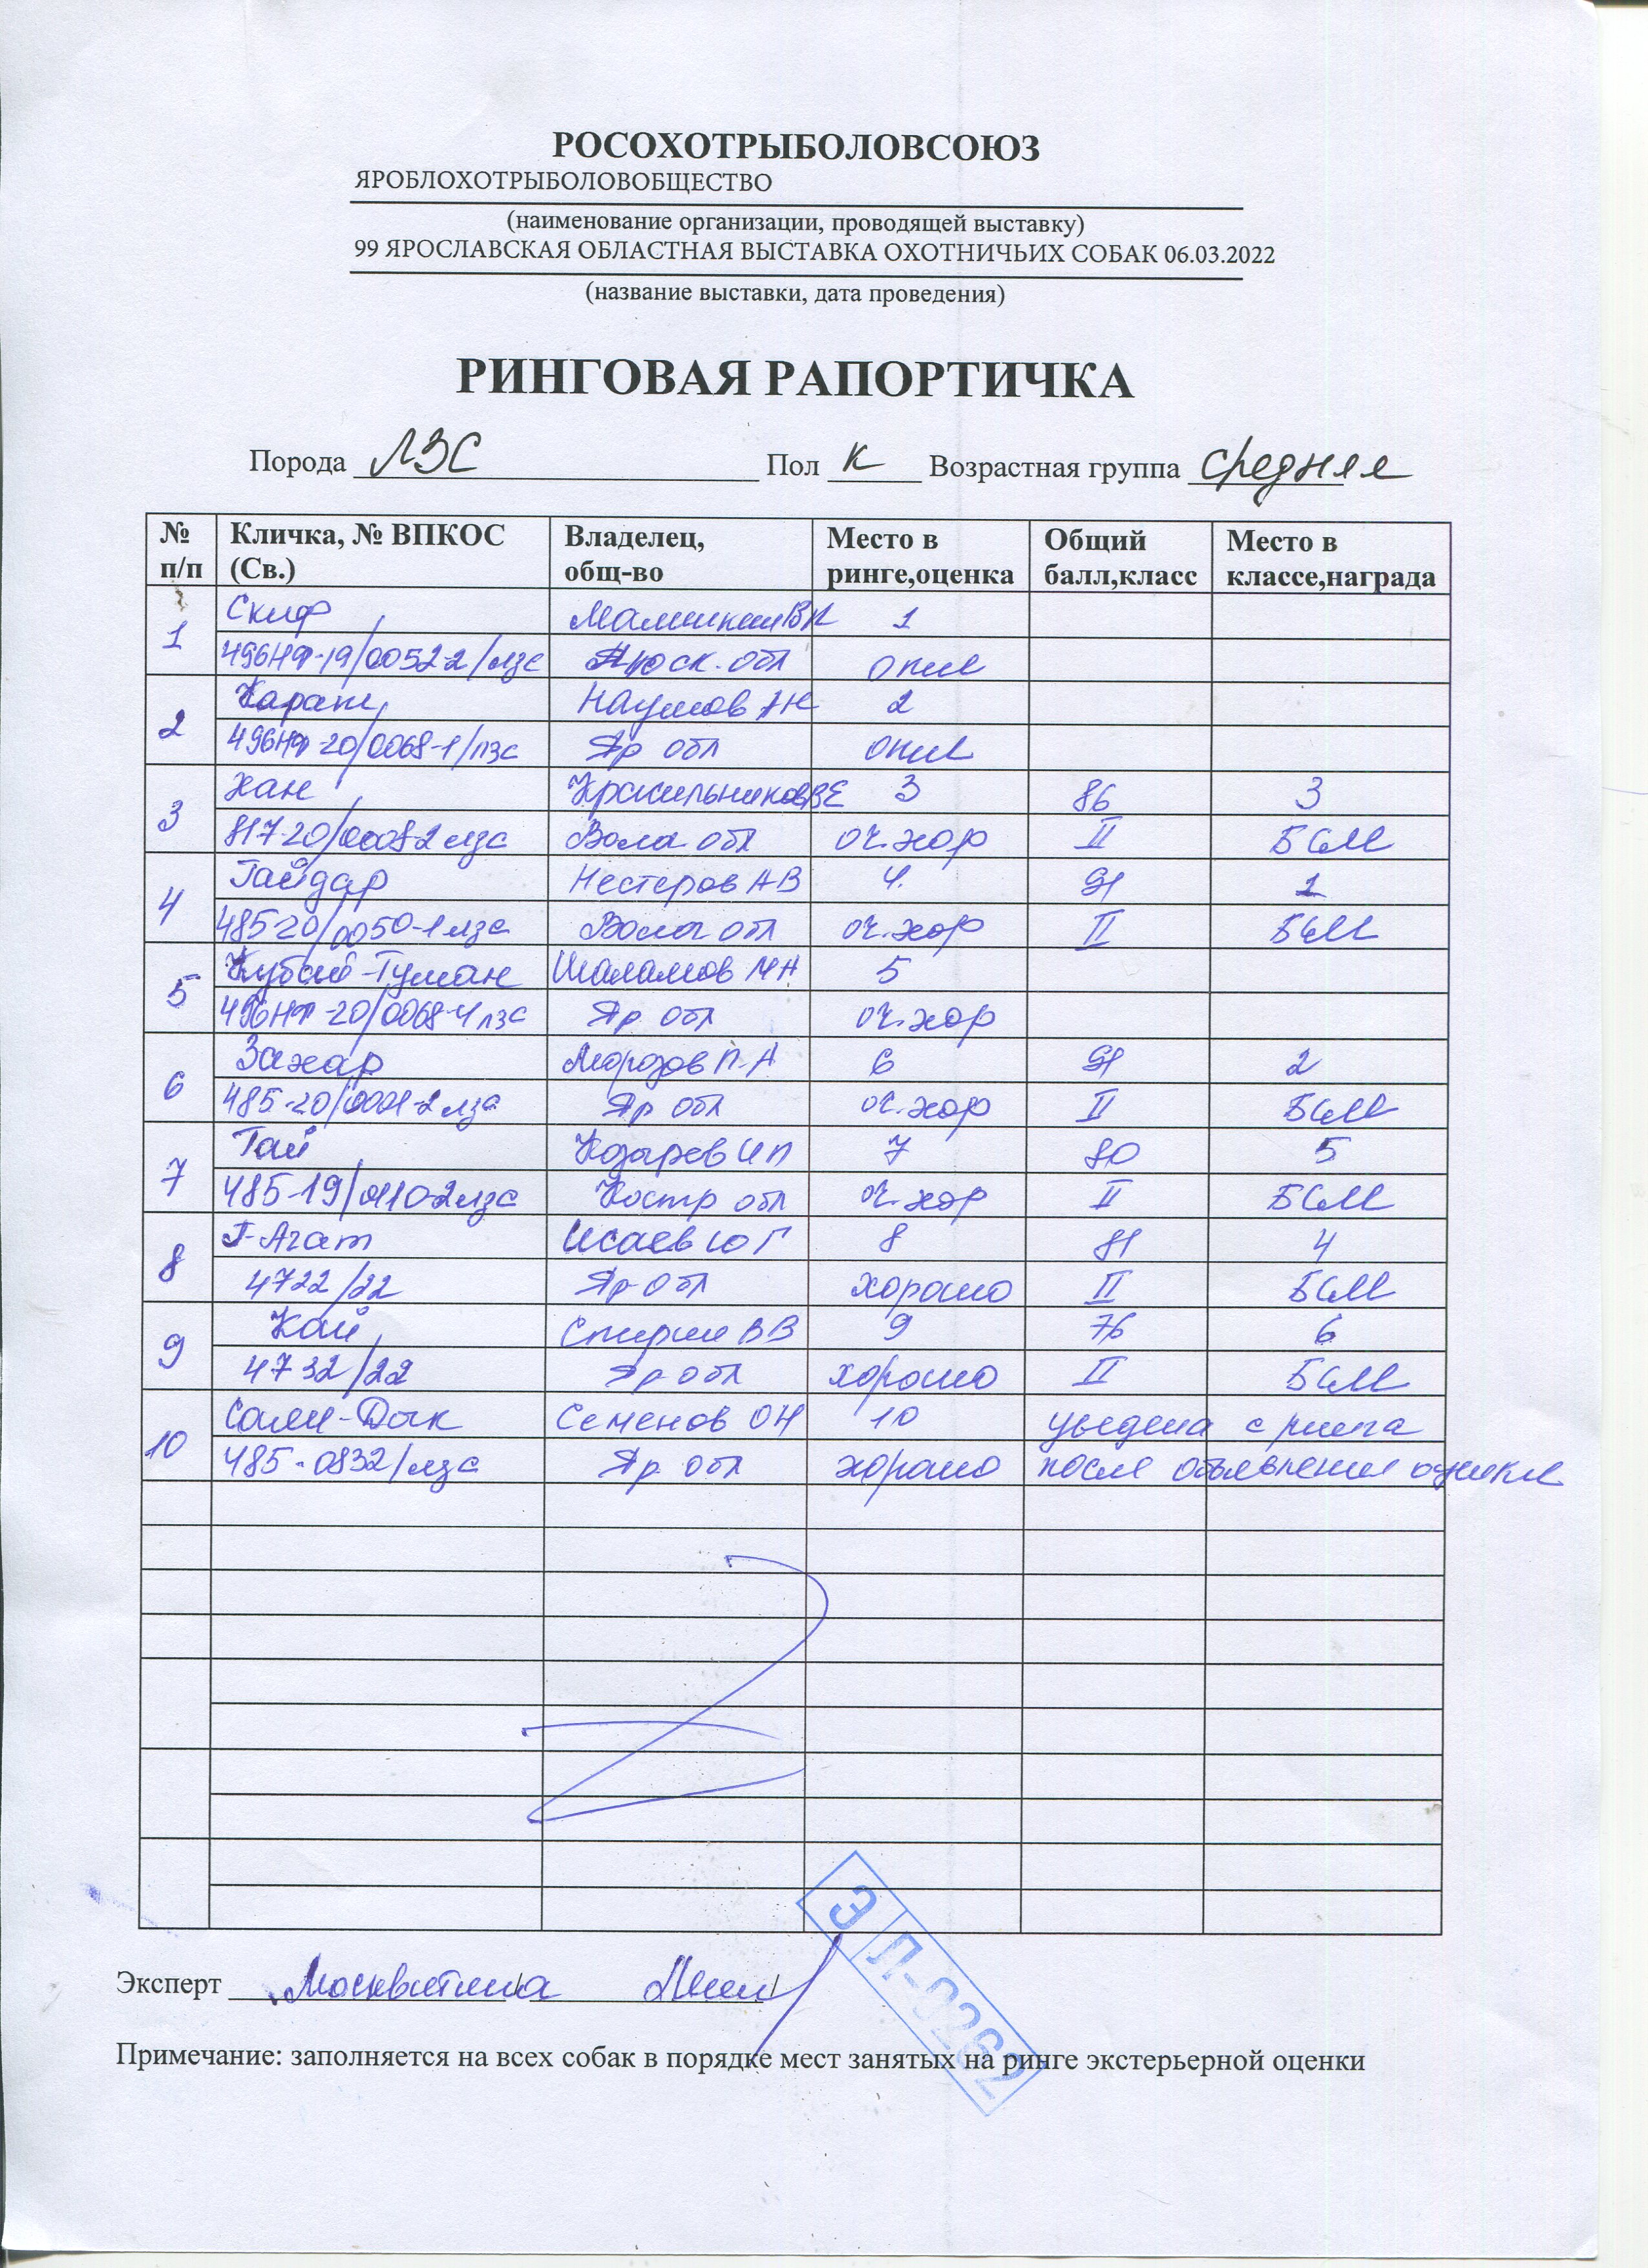 РОСОХОТРЫБОЛОВСОЮЗ
ЯРОБЛОХОТРЫБОЛОВОБЩЕСТВО
(наименование организации, проводящей выставку)
99 ЯРОСЛАВСКАЯ ОБЛАСТНАЯ ВЫСТАВКА ОХОТНИЧЬИХ СОБАК 06.03.2022
(название выставки, дата проведения)
РИНГОВАЯ РАПОРТИЧКА
Порода ЛЗС Пол К Возрастная группа средняя
№ п/п Кличка, № ВПКОС (Св.) Владелец, общ-во Место в ринге,оценка Общий балл,класс Место в классе,награда
1 Скиф 1
496НФ-19/0052-2/лзс обл
2 Карат Наумов 2
496НФ-20/0068-1/лзс Яр обл
3 Хан Красильников ВЕ 3 86 3
817-20/0008-2 лзс Волог обл оч.хор II БСМ
4 Гайдар Нестеров АВ 4 91 1
485-20/0050-1 лзс Волог обл оч.хор II БСМ
5 Кубай-Туман Шаламов МН 5
496НФ-20/0068-4 лзс Яр обл оч.хор
6 Захар Морозов П.А 6 91 2
485-20/ лзс Яр обл оч.хор II БСМ
7 Тай Козырев ИП 7 80 5
485-19/0110-2 лзс Костр обл оч.хор II БСМ
8 Г-Агат Исаев ЮГ 8 81 4
4722/22 Яр обл хорошо II БСМ
9 Кай Спирин ВВ 9 76 6
4732/22 Яр обл хорошо II БСМ
10 Семенов ОН 10 уведена с ринга
485-0832/лзс Яр. обл хорошо после объявления оценки
Эксперт Москвитина
Э Л-0262
Примечание: заполняется на всех собак в порядке мест занятых на ринге экстерьерной оценки